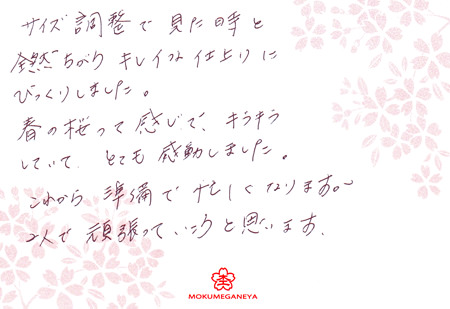 サイズ調整で見た時と
全然ちがう キレイな仕上りに
びっくりしました。
春の桜って感じで、キラキラ
していて、とても感動しました。
これから 準備で忙しくなります。
2人で 頑張っていこうと思います。
MOKUMEGANEYA